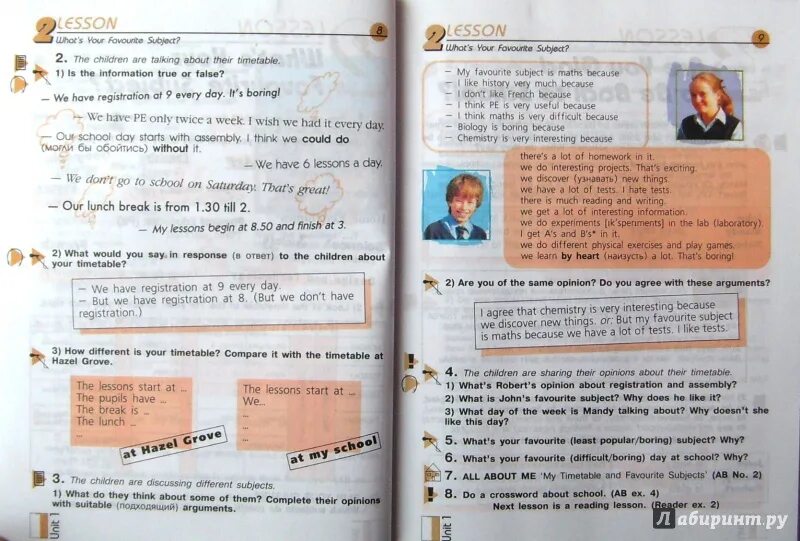 2 LESSON
What's Your Favourite Subject?
8
2. The children are talking about their timetable.
1) Is the information true or false?
– We have registration at 9 every day. It's boring!
– We have PE only twice a week. I wish we had it every day.
– Our school day starts with assembly. I think we could do
(могли бы обойтись) without it.
– We have 6 lessons a day.
– We don't go to school on Saturday. That's great!
– Our lunch break is from 1.30 till 2.
– My lessons begin at 8.50 and finish at 3.
2) What would you say in response (в ответ) to the children about
your timetable?
– We have registration at 9 every day.
– But we have registration at 8. (But we don't have
registration.)
3) How different is your timetable? Compare it with the timetable at
Hazel Grove.
The lessons start at ...
The pupils have ...
The break is ...
The lunch ...
...
at Hazel Grove
The lessons start at ...
We...
...
...
...
at my school
3. The children are discussing different subjects.
1) What do they think about some of them? Complete their opinions
with suitable (подходящий) arguments.
Unit 1
2 LESSON
What's Your Favourite Subject?
9
– My favourite subject is maths because
– I like history very much because
– I don't like French because
– I think PE is very useful because
– I think maths is very difficult because
– Biology is boring because
– Chemistry is very interesting because
there's a lot of homework in it.
we do interesting projects. That's exciting.
we discover (узнавать) new things.
we have a lot of tests. I hate tests.
there is much reading and writing.
we get a lot of interesting information.
we do experiments [ık'sperıments] in the lab (laboratory).
I get A's and B's* in it.
we do different physical exercises and play games.
we learn by heart (наизусть) a lot. That's boring!
2) Are you of the same opinion? Do you agree with these arguments?
I agree that chemistry is very interesting because
we discover new things. or: But my favourite subject
is maths because we have a lot of tests. I like tests.
4. The children are sharing their opinions about their timetable.
1) What's Robert's opinion about registration and assembly?
2) What is John's favourite subject? Why does he like it?
3) What day of the week is Mandy talking about? Why doesn't she
like this day?
5. What's your favourite (least popular/boring) subject? Why?
6. What's your favourite (difficult/boring) day at school? Why?
7. ALL ABOUT ME 'My Timetable and Favourite Subjects' (AB No. 2)
8. Do a crossword about school. (AB ex. 4)
Next lesson is a reading lesson. (Reader ex. 2)
Unit 1
Лабиринт.ру